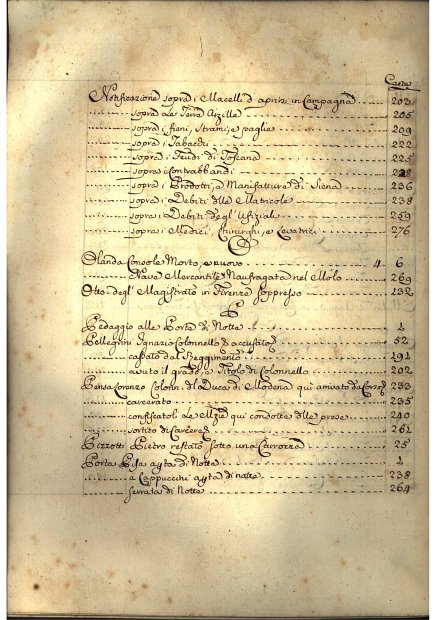 Carte
Notificazione sopra i Macelli d'aprirsi in Campagna 203
sopra le Terre Argille 205
sopra i Fieni, Strami, e paglie 209
sopra i Tabacchi 222
sopra i Feudi di Toscana 225
sopra i Contrabbandi
sopra i Prodotti, e Manifatture di Siena 236
sopra i Debiti delle Matricole 238
sopra i Debiti degl'Ufiziali 259
sopra i Medici, Chirurghi, e Levatrici 276
O
Olanda Console Morto, e nuovo 4 6
Nave Mercantile Naufragata nel Molo 269
Otto degl'Magistrato in Firenze soppresso 132
P
Pedaggio alle Porte di Notte 1
Pellegrini Ignazio Colonnello accusato 52
cassato dal Reggimento 191
avuto il grado, e Titolo di Colonnello 202
Pensa Lorenzo Colonn. del Duca di Modena qui arrivato da 233
carcerato 235
confiscatoli le qui condotte 240
sortito di Carcere 261
Pizzotti Pietro restato sotto una Carrozza 25
Porta Pisa apta di Notte 1
a Cappuccini apta di notte 238
serrata di Notte 264